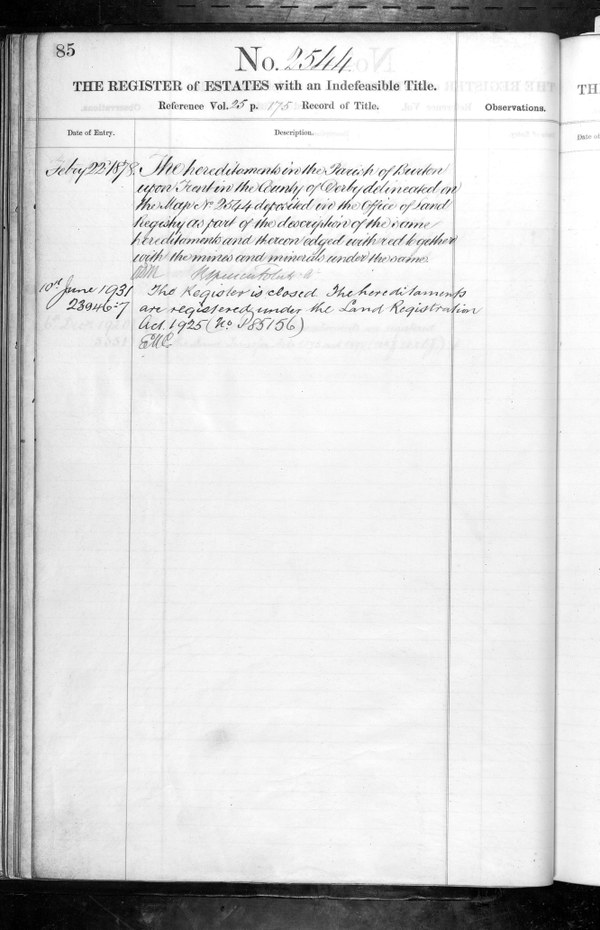 85
No. 2544
THE REGISTER of ESTATES with an Indefeasible Title.
Reference Vol. 25 p. 175 Record of Title.
Observations.
Date of Entry.
Description.
Febry 22d 1878
The hereditaments in the Parish of Burton
upon Trent in the County of Derby delineated on
the Map No 2544 deposited in the Office of Land
Registry as part of the description of the same
hereditaments and thereon edged with red together
with the mines and minerals under the same.
10th June 1931
23946-7
The Register is closed The hereditaments
are registered under the Land Registration
Act. 1925 (No. P85156)
TH
Date of